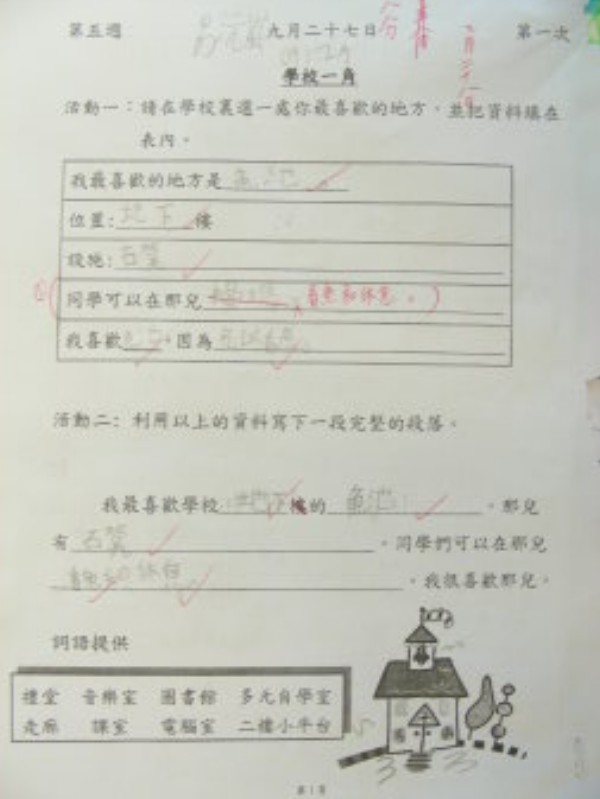 第五週 九月二十七日 第一次
學校一角
活動一:請在學校裏選一處你最喜歡的地方,並把資料填在
表內。
我最喜歡的地方是 魚池。
位置: 地下 樓
設施: 石凳
同學可以在那兒 看魚和休息。
我喜歡 ,因為
活動二: 利用以上的資料寫下一段完整的段落。
我最喜歡學校 地下 樓的 魚池 。那兒
有 石凳 。同學們可以在那兒
看魚和休息 。我很喜歡那兒。
詞語提供
禮堂 音樂室 圖書館 多元自學室
走廊 課室 電腦室 二樓小平台
第1頁